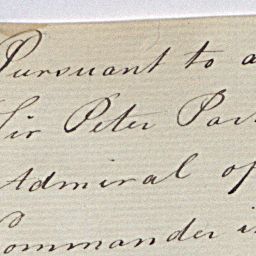 Pursuant to a
Sir Peter Par
Admiral of
Commander i